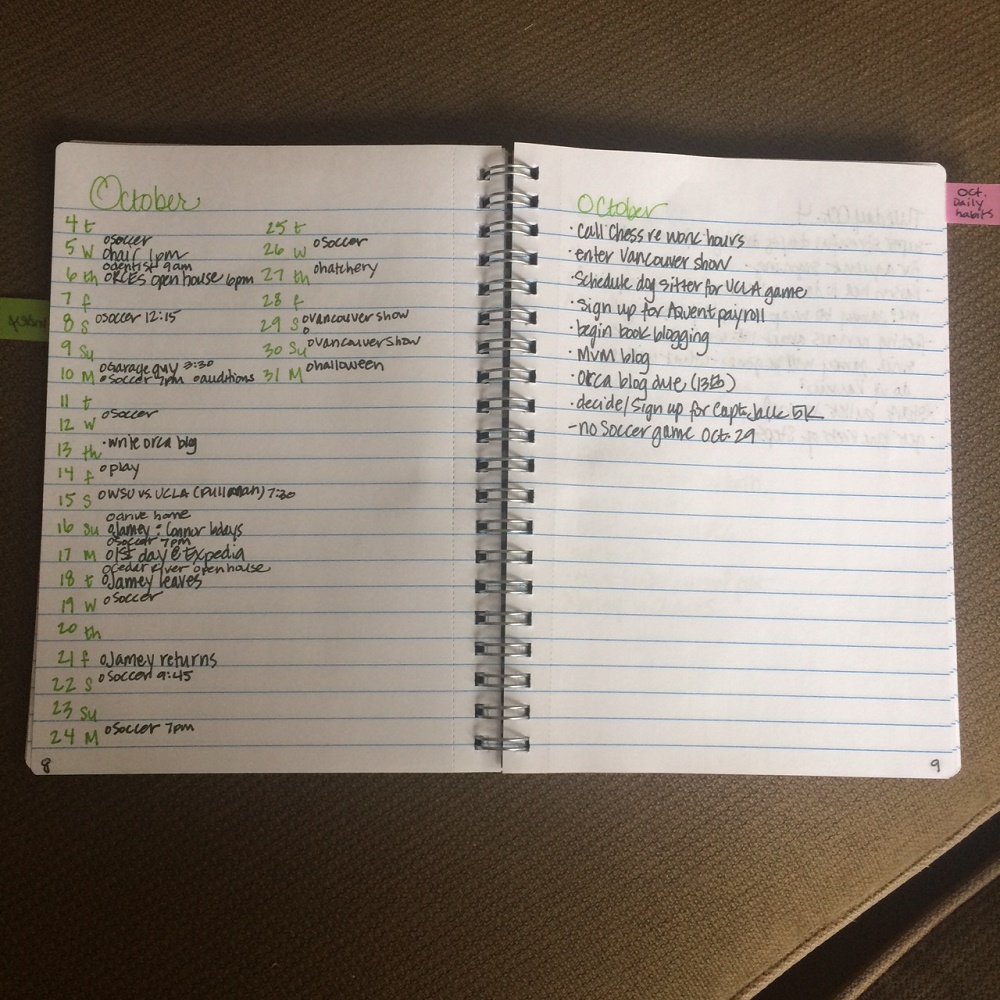 October
4 t
5 W o soccer
o hair 1pm
o dentist 9am
6 th o RCES open house 6pm
7 f
8 S o soccer 12:15
9 Su
o garage guy 3:30
10 M o soccer 7pm o auditions
11 t
12 W o soccer
13 th · write orca blog
14 f o play
15 S o WSU vs. UCLA (Pullman) 7:30
o drive home
16 Su o Jamey : Connor bdays
o soccer 7pm
17 M o 1st day @ Expedia
o Cedar River open house
18 t o Jamey leaves
19 W o soccer
20 th
21 f o Jamey returns
22 S o soccer 9:45
23 Su
24 M o soccer 7pm
8
25 t
26 W o soccer
27 th o hatchery
28 f
29 S o vancouver show
o
30 Su o vancouver show
31 M o halloween
October
· call Chess re work hours
· enter Vancouver show
· Schedule dog sitter for UCLA game
· Sign up for Aquent payroll
· begin book blogging
· MVM blog
· Orca blog due (13th)
· decide/sign up for Capt. Jack 5K
- no Soccer game Oct. 29
9
Oct.
Daily
habits